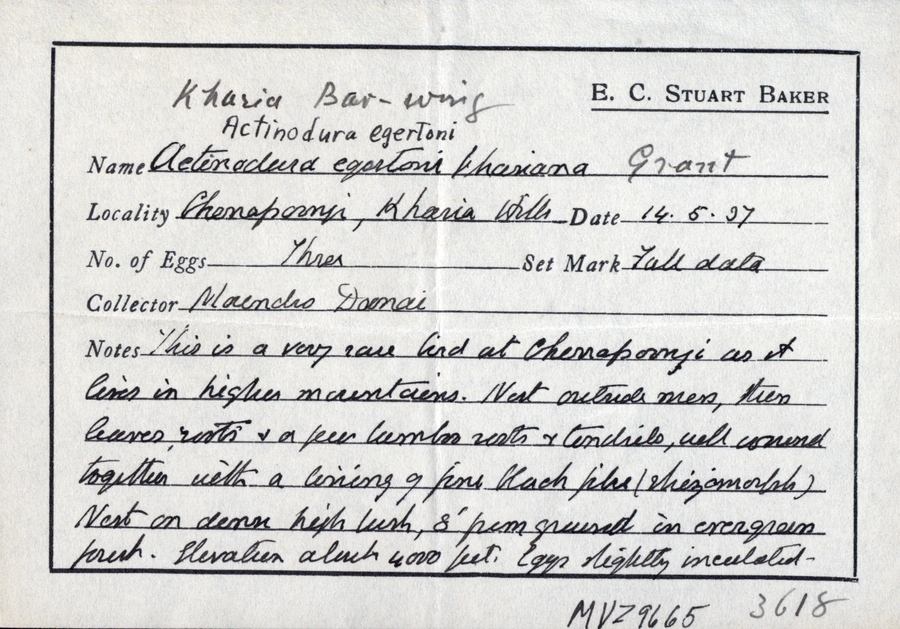 Kharia Bar-wing
E. C. STUART BAKER
Actinodura egertoni
Name Actinodura egertoni khariana Grant
Locality Cherrapoonji, Kharia Hills Date 14. 5. 37
No. of Eggs Three Set Mark Full data
Collector
Notes This is a very rare bird at Cherrapoonji as it
lives in higher mountains. Nest outside moss, then
leaves, roots & a few bamboo roots & tendrils, well wound
together with a lining of fine black fibre (rhizomorph)
Nest on dense high bush, 8' from ground in evergreen
forest. Elevation about 4000 feet. Eggs slightly incubated-
MVZ9665 3618